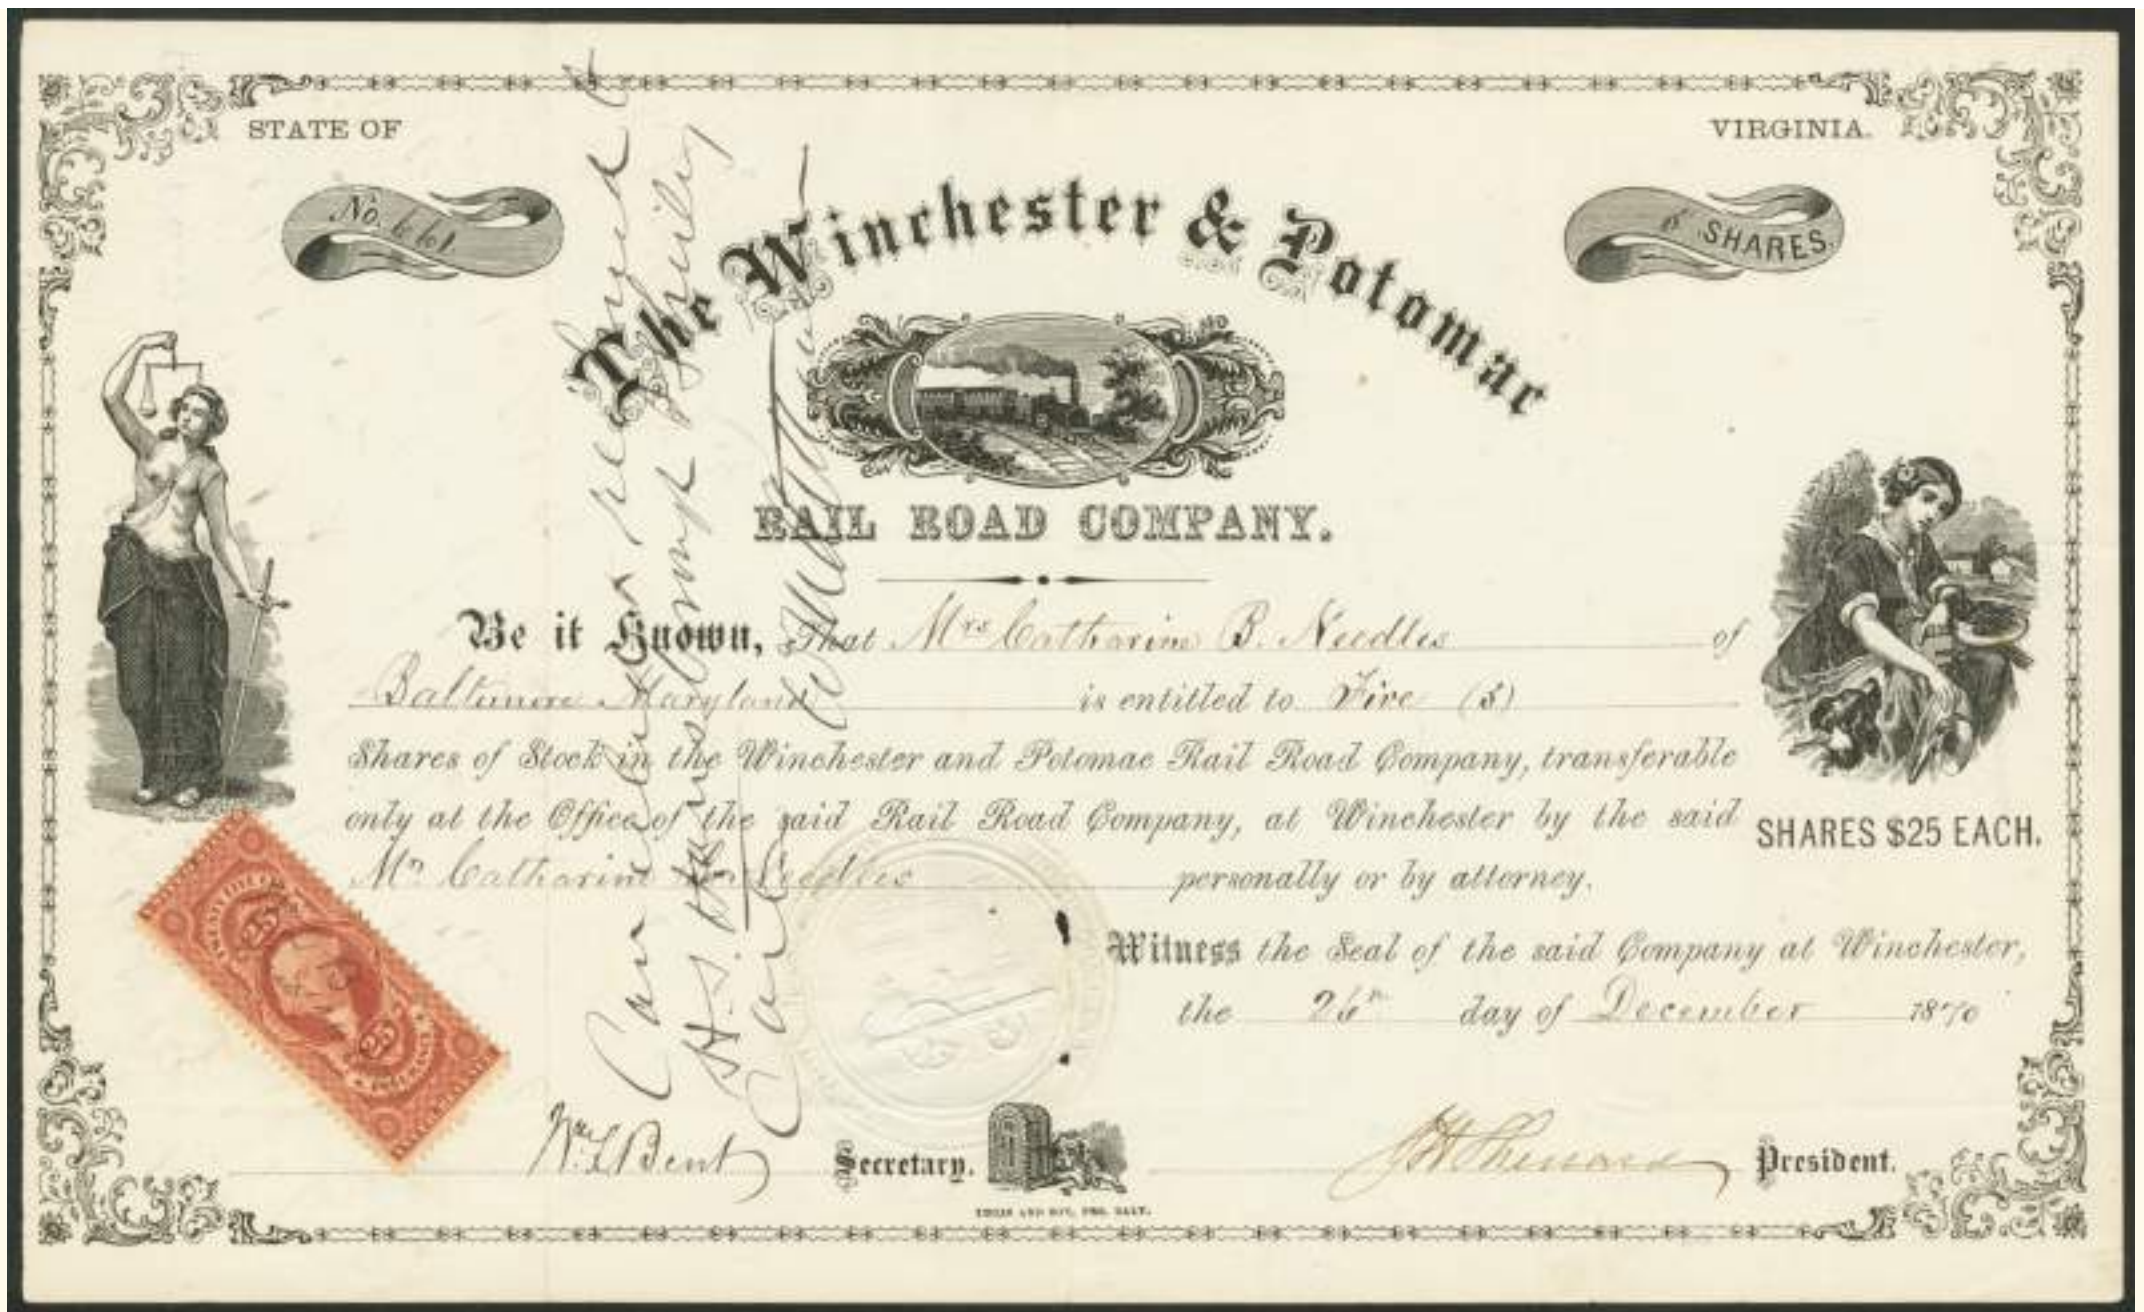 STATE OF
VIRGINIA.
No. 661
5 SHARES.
The Winchester & Potomac
RAIL ROAD COMPANY.
Be it Known, That Mrs Catharine B. Needles of
Baltimore Maryland is entitled to Five (5)
Shares of Stock in the Winchester and Potomac Rail Road Company, transferable
only at the Office of the said Rail Road Company, at Winchester by the said
SHARES $25 EACH.
Mrs Catharine B. Needles personally or by attorney.
Witness the Seal of the said Company at Winchester,
the day of December 1870
25
25
Wm L Bent Secretary.
President.